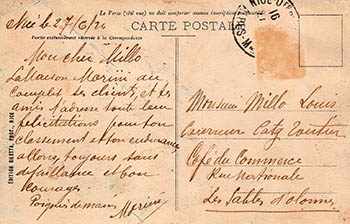 Le Verso (côté vue) ne doit comporter aucune inscription
CARTE POSTALE
Partie exclusivement réservée à la Correspondance
Nice le 27/6/24
Mon cher Millo
La Maison Merini au
complet ses clients, et ses
amis t'adresse tout leur
félicitations pour ton
classement et ton endurance
allons, toujours sans
défaillance et bon
courage.
Poignées de mains
Merini
Monsieur Millo Louis
Coureur Caty Routier
Café du Commerce
Rue Nationale
Les Sables d'Olonne
EDITION GILETTA, PHOT., NICE
NICE
16